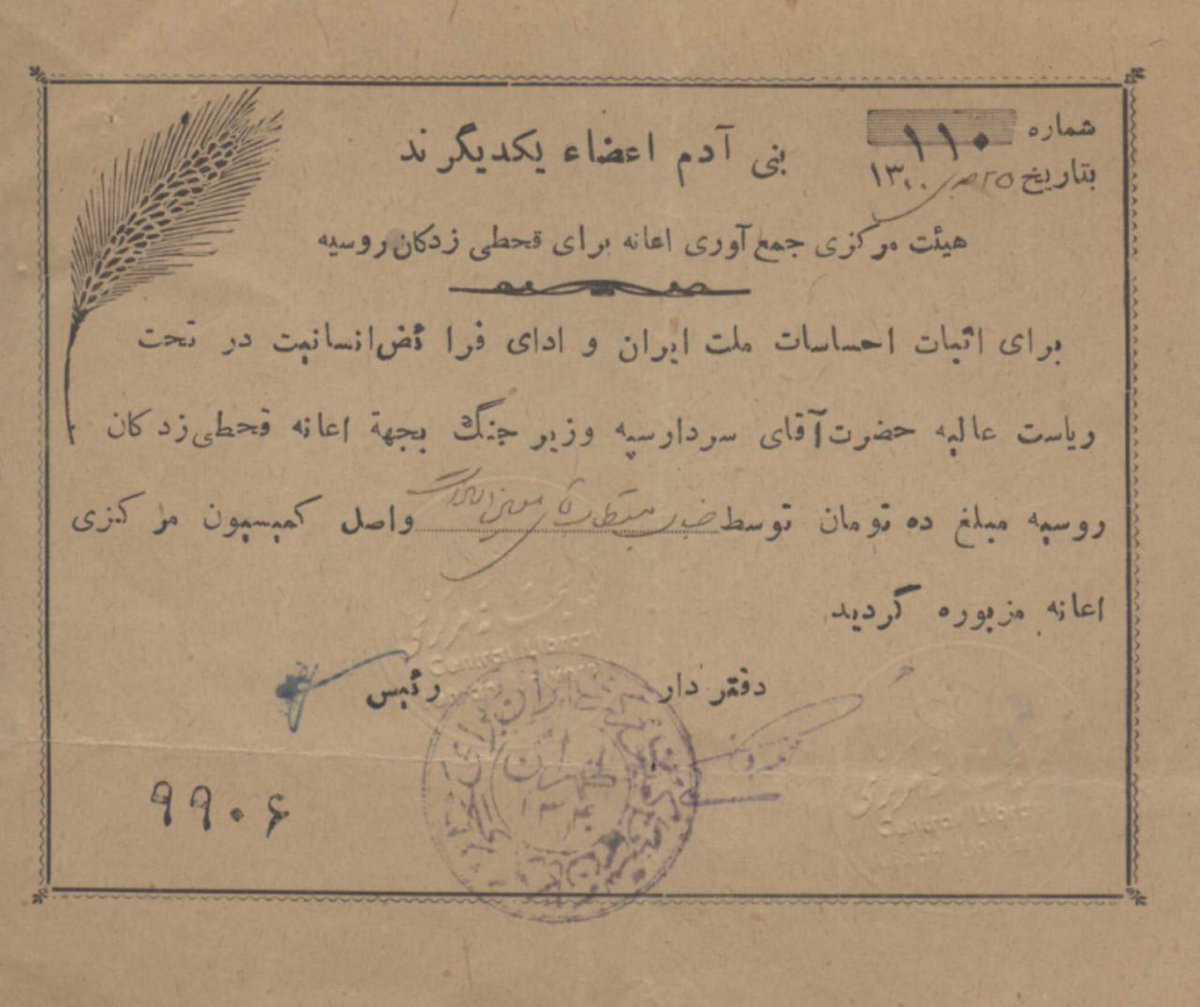 شماره ۱۱۰
بتاریخ ۲۵ ۱۳۰۰
بنی آدم اعضاء یکدیگرند
هیئت مرکزی جمع آوری اعانه برای قحطی زدکان روسیه
برای اثبات احساسات ملت ایران و ادای فرائض انسانیت در تحت
ریاست عالیه حضرت آقای سردار سپه وزیر جنگ بجهة اعانه قحطی زدکان
روسیه مبلغ ده تومان توسط واصل کمیسیون مرکزی
اعانه مزبوره گردید
دفتر دار رئیس
طهران
Central Library
۹۹۰۶